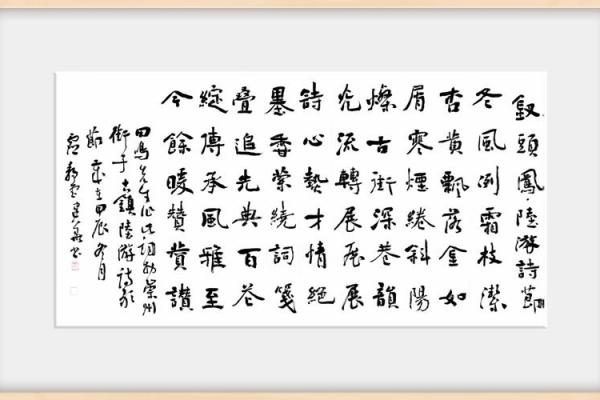 釵頭鳳·陸游詩節
冬風冽霜枝潔
杏黄飄落金如
屑寒煙綣斜陽
燦古街深巷韻
光流轉展展展
詩心熱才情絕
墨香縈繞詞箋
疊追先典百花
綻傳承風雅至
今餘暖贊贊讃
田鸣先生作此词 崇州
街子古鎮陸游詩歌
節 歲在甲辰冬月